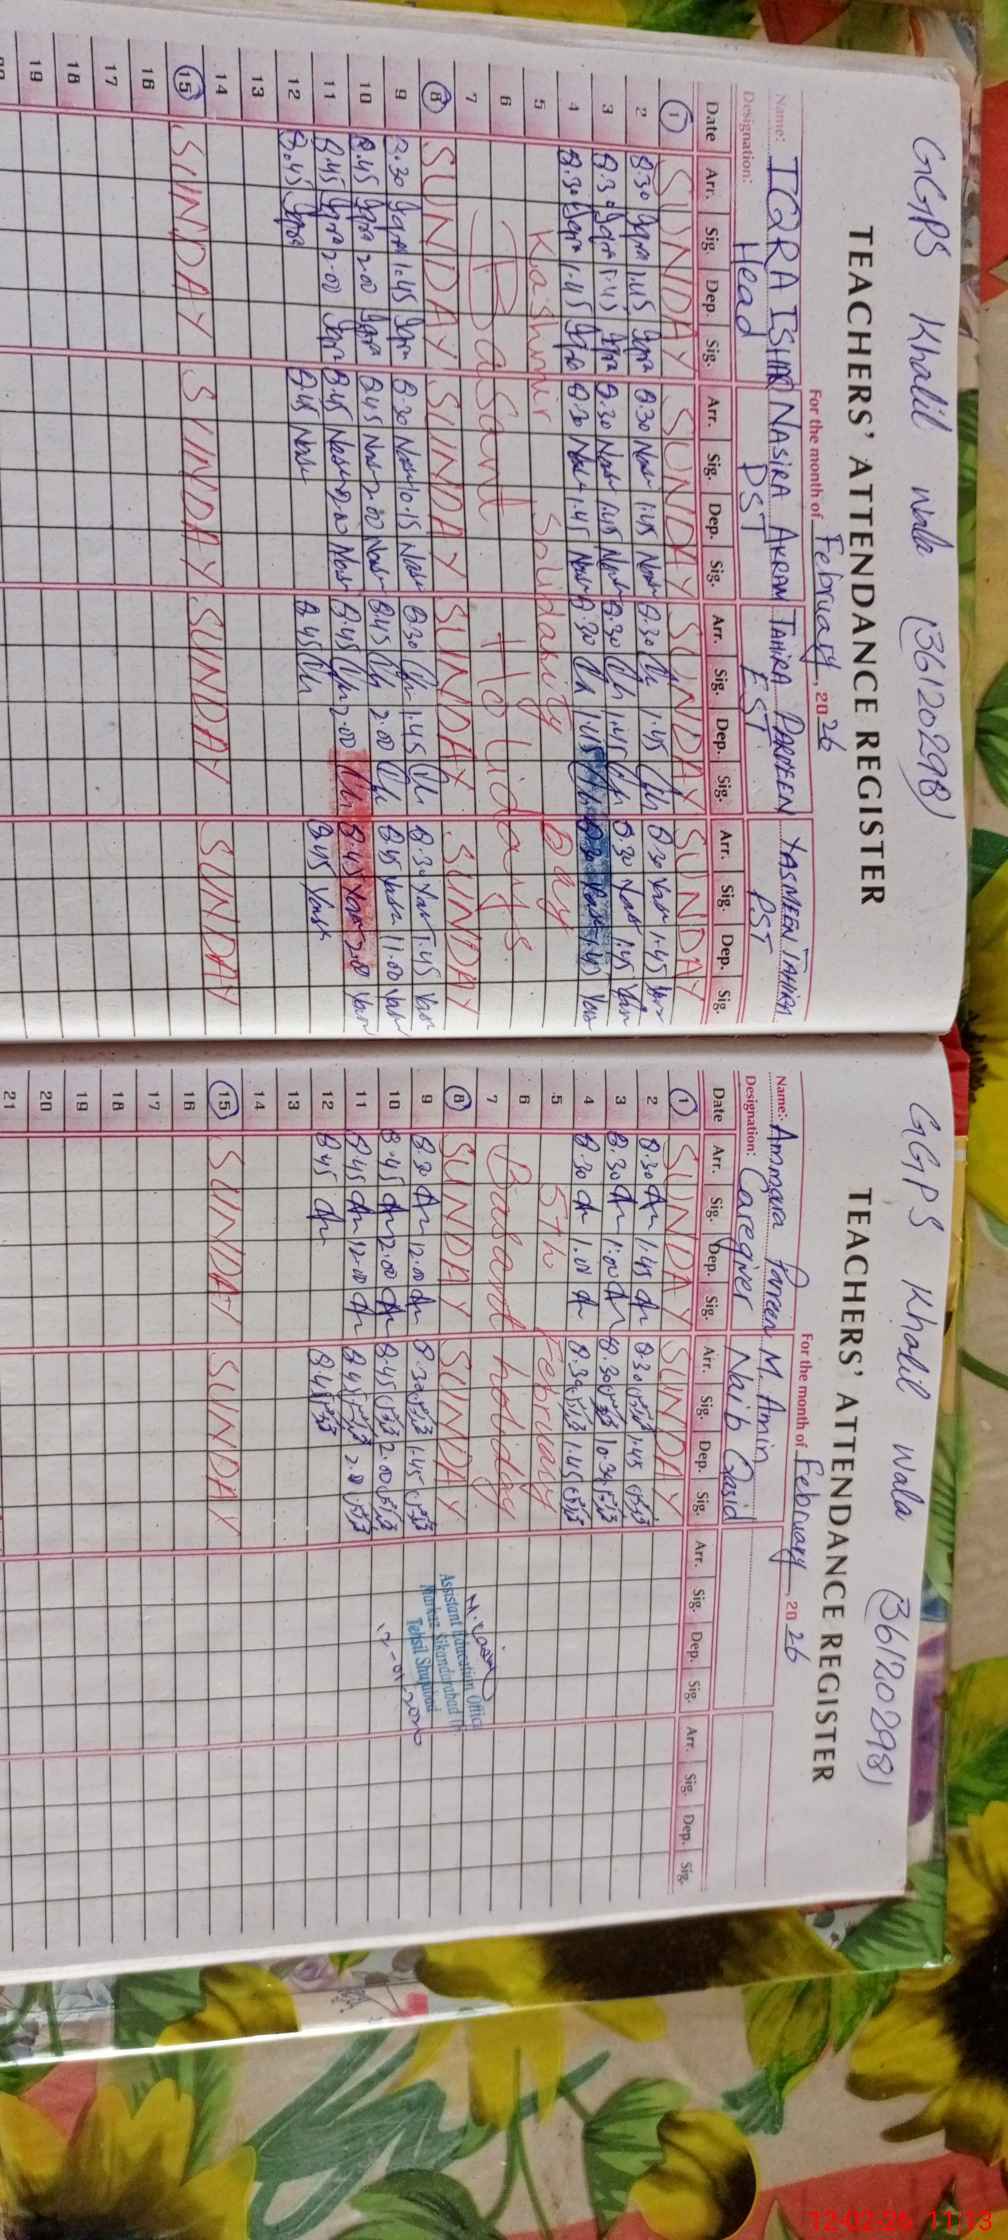 GGPS Khalil Wala (36120298)
TEACHERS' ATTENDANCE REGISTER
For the month of February, 2026
Name: IQRA ISHAQ NASIRA AKRAM TAHIRA PARVEEN YASMEEN TAHIRA
Designation: Head PST EST PST
Date Arr. Sig. Dep. Sig. Arr. Sig. Dep. Sig. Arr. Sig. Dep. Sig. Arr. Sig. Dep. Sig.
1 SUNDAY SUNDAY SUNDAY SUNDAY
2 8.30 Iqra 1.45 Iqra 8.30 Nasir 1.45 Nasir 8.30 1.45 8.30 Yasm 1.45 Yasm
3 8.30 Iqra 1.45 Iqra 8.30 Nasir 1.45 Nasir 8.30 1.45 8.30 Yasm 1.45 Yasm
4 8.30 Iqra 1.45 Iqra 8.30 Nasir 1.45 Nasir 8.30 1.45 8.30 Yasm 1.45 Yasm
5 Kashmir Solidarity Day
6 Basant Holidays.
7
8 SUNDAY SUNDAY SUNDAY SUNDAY
9 8.30 Iqra 1.45 Iqra 8.30 Nasir 10.15 Nasir 8.30 1.45 8.30 Yasm 1.45 Yasm
10 8.45 Iqra 2.00 Iqra 8.45 Nasir 2.00 Nasir 8.45 2.00 8.45 Yasm 11.00 Yasm
11 8.45 Iqra 2.00 Iqra 8.45 Nasir 2.00 Nasir 8.45 2.00 8.45 Yasm 2.00 Yasm
12 8.45 Iqra 8.45 Nasir 8.45 8.45 Yasm
13
14
15 SUNDAY SUNDAY SUNDAY SUNDAY
16
17
18
19
GGPS Khalil Wala (36120298)
TEACHERS' ATTENDANCE REGISTER
For the month of February, 2026
Name: Ammara Parveen M. Amin
Designation: Caregiver Naib Qasid
Date Arr. Sig. Dep. Sig. Arr. Sig. Dep. Sig. Arr. Sig. Dep. Sig. Arr. Sig. Dep. Sig.
1 SUNDAY SUNDAY
2 8.30 1.45 8.30 1.45
3 8.30 1.00 8.30 10.30
4 8.30 1.00 8.30 1.45
5 5th February
6
7 Basant holiday
8 SUNDAY SUNDAY
9 8.30 12.00 8.30 1.45
10 8.45 2.00 8.45 2.00
11 8.45 12.00 8.45 2.00
12 8.45 8.45
13
14
15 SUNDAY SUNDAY
16
17
18
19
20
21
Assistant Education Officer
Markaz Sikandarabad
Tehsil Shujabad
12-02-26 11:13